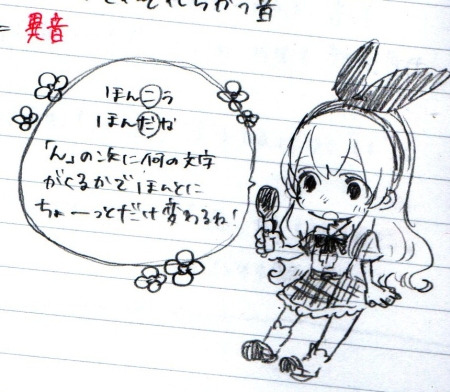 それぞれちがう音
= 異音
ほんこう
ほんだな
「ん」の次に何の文字
がくるかでほんとに
ちょーっとだけ変わるね!